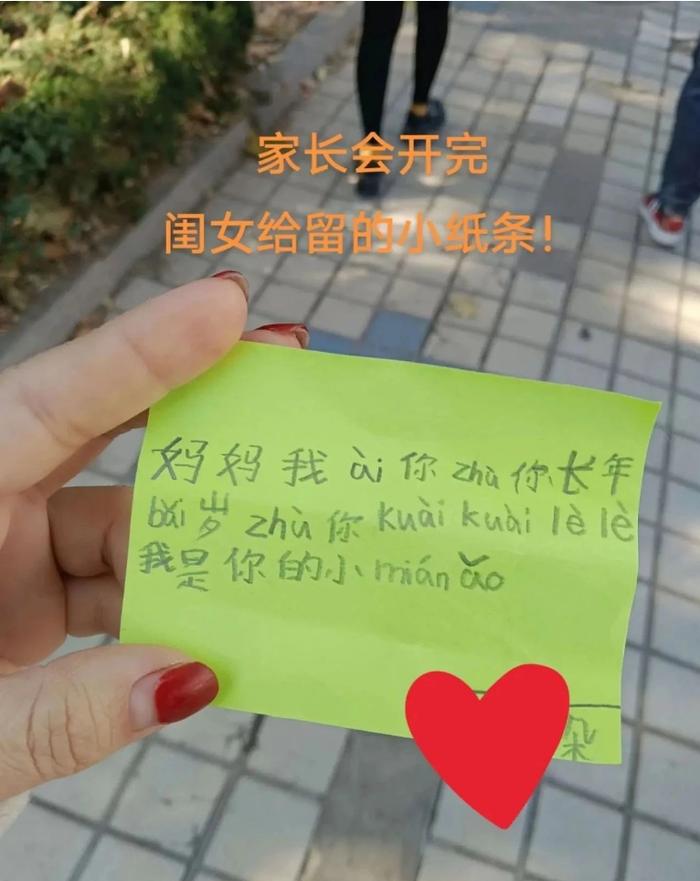 家长会开完
闺女给留的小纸条!
妈妈我ài你zhù你长年
bǎi岁zhù你kuài kuài lè lè
我是你的小mián ǎo
朵